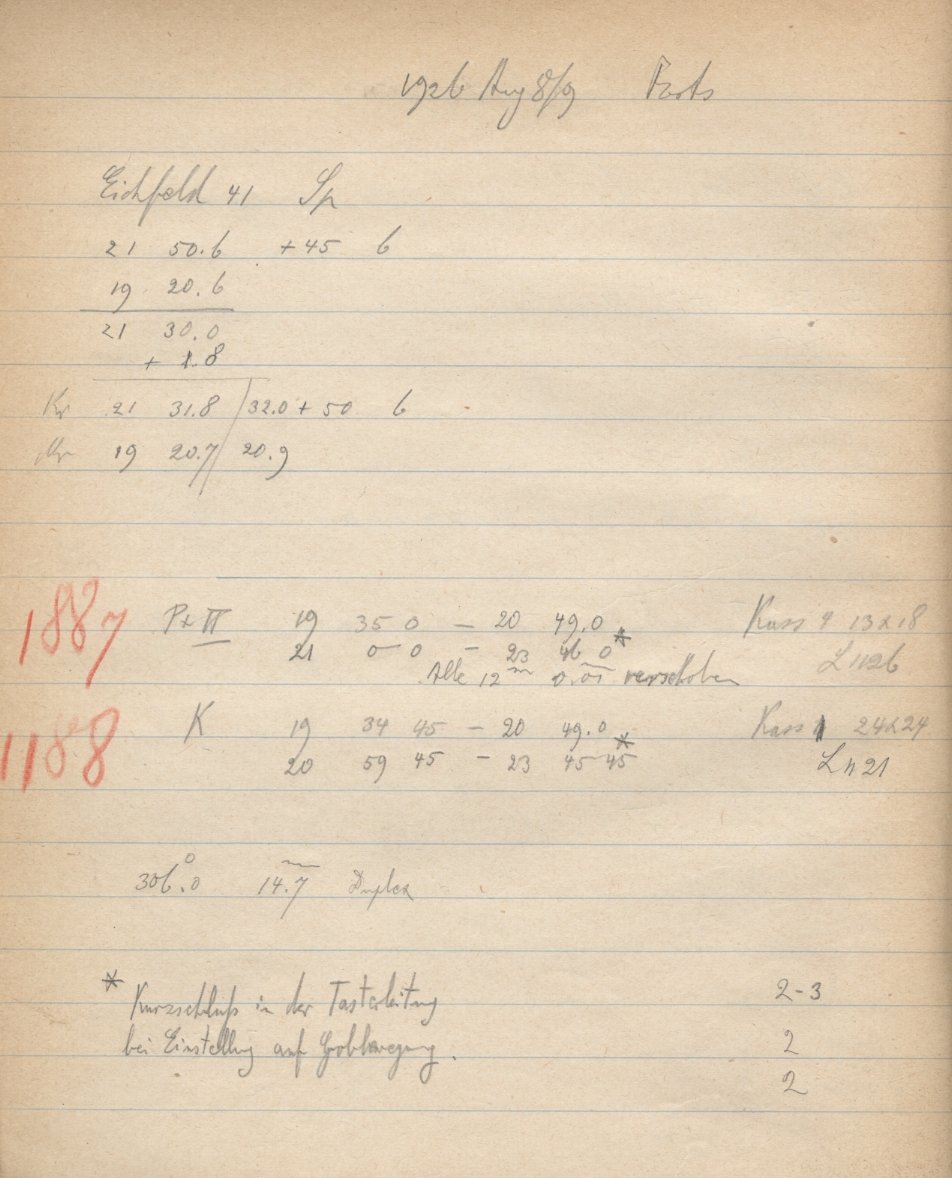 1926 Aug 8/9
Eichfeld 41 Sp
21 50.6 +45 6
19 20.6
21 30.0
+ 1.8
Kr 21 31.8 / 32.0 + 50 6
19 20.7 / 20.9
1887 Pr II 19 35 0 – 20 49.0 Kass 9 13x18
21 0 0 – 23 46 0 * L 1126
Alle 12ᵐ 0.01 verschoben
1188 K 19 34 45 – 20 49.0 Kass 1 24x24
20 59 45 – 23 45 45 * L 1121
306°.0 14.7 Duplex
* Kurzschluß in der Tasterleitung 2-3
bei Einstellung auf Grobbewegung. 2
2